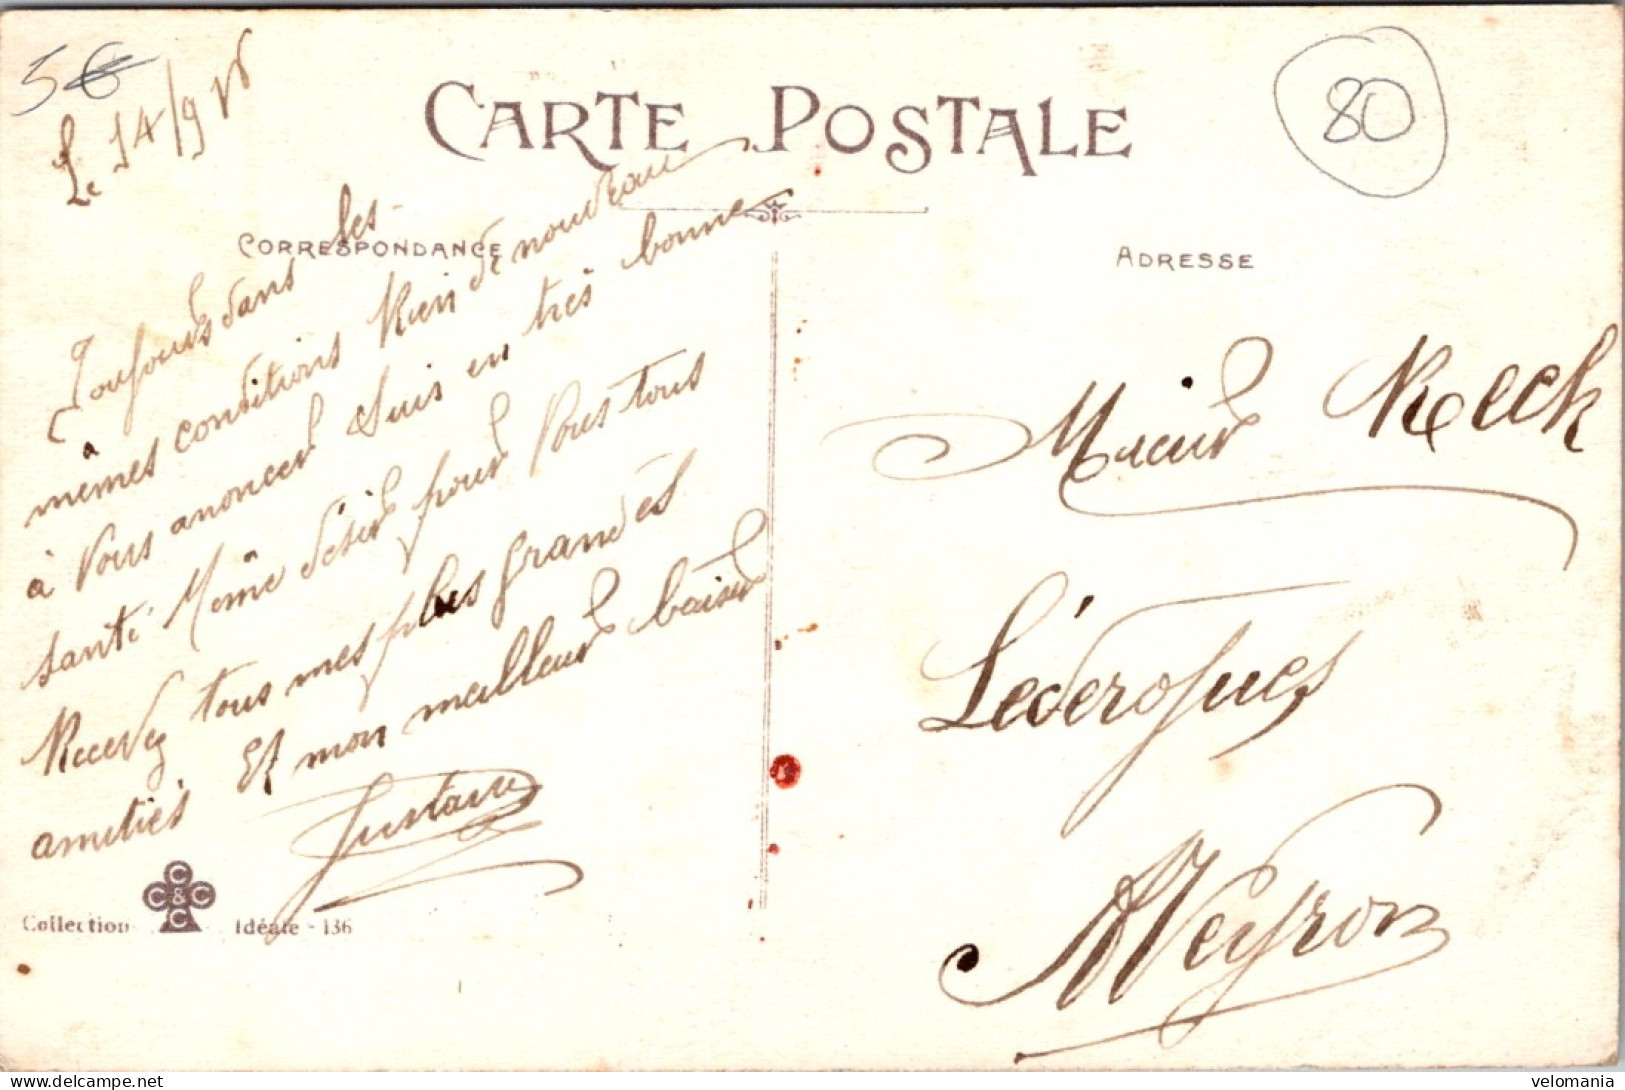 5€
Le 14/9 15
CARTE POSTALE
80
CORRESPONDANCE
ADRESSE
Toujours dans les
mêmes conditions Rien de nouveau
à Vous anoncer Suis en très bonne
santé Même désir pour Vous tous
Recevez tous mes plus grandes
amitiés Et mon meilleur baiser
Gustave
Mr Reeck
Lederogues
AVeyron
Collection CCC&C Idéale - 136
velomania